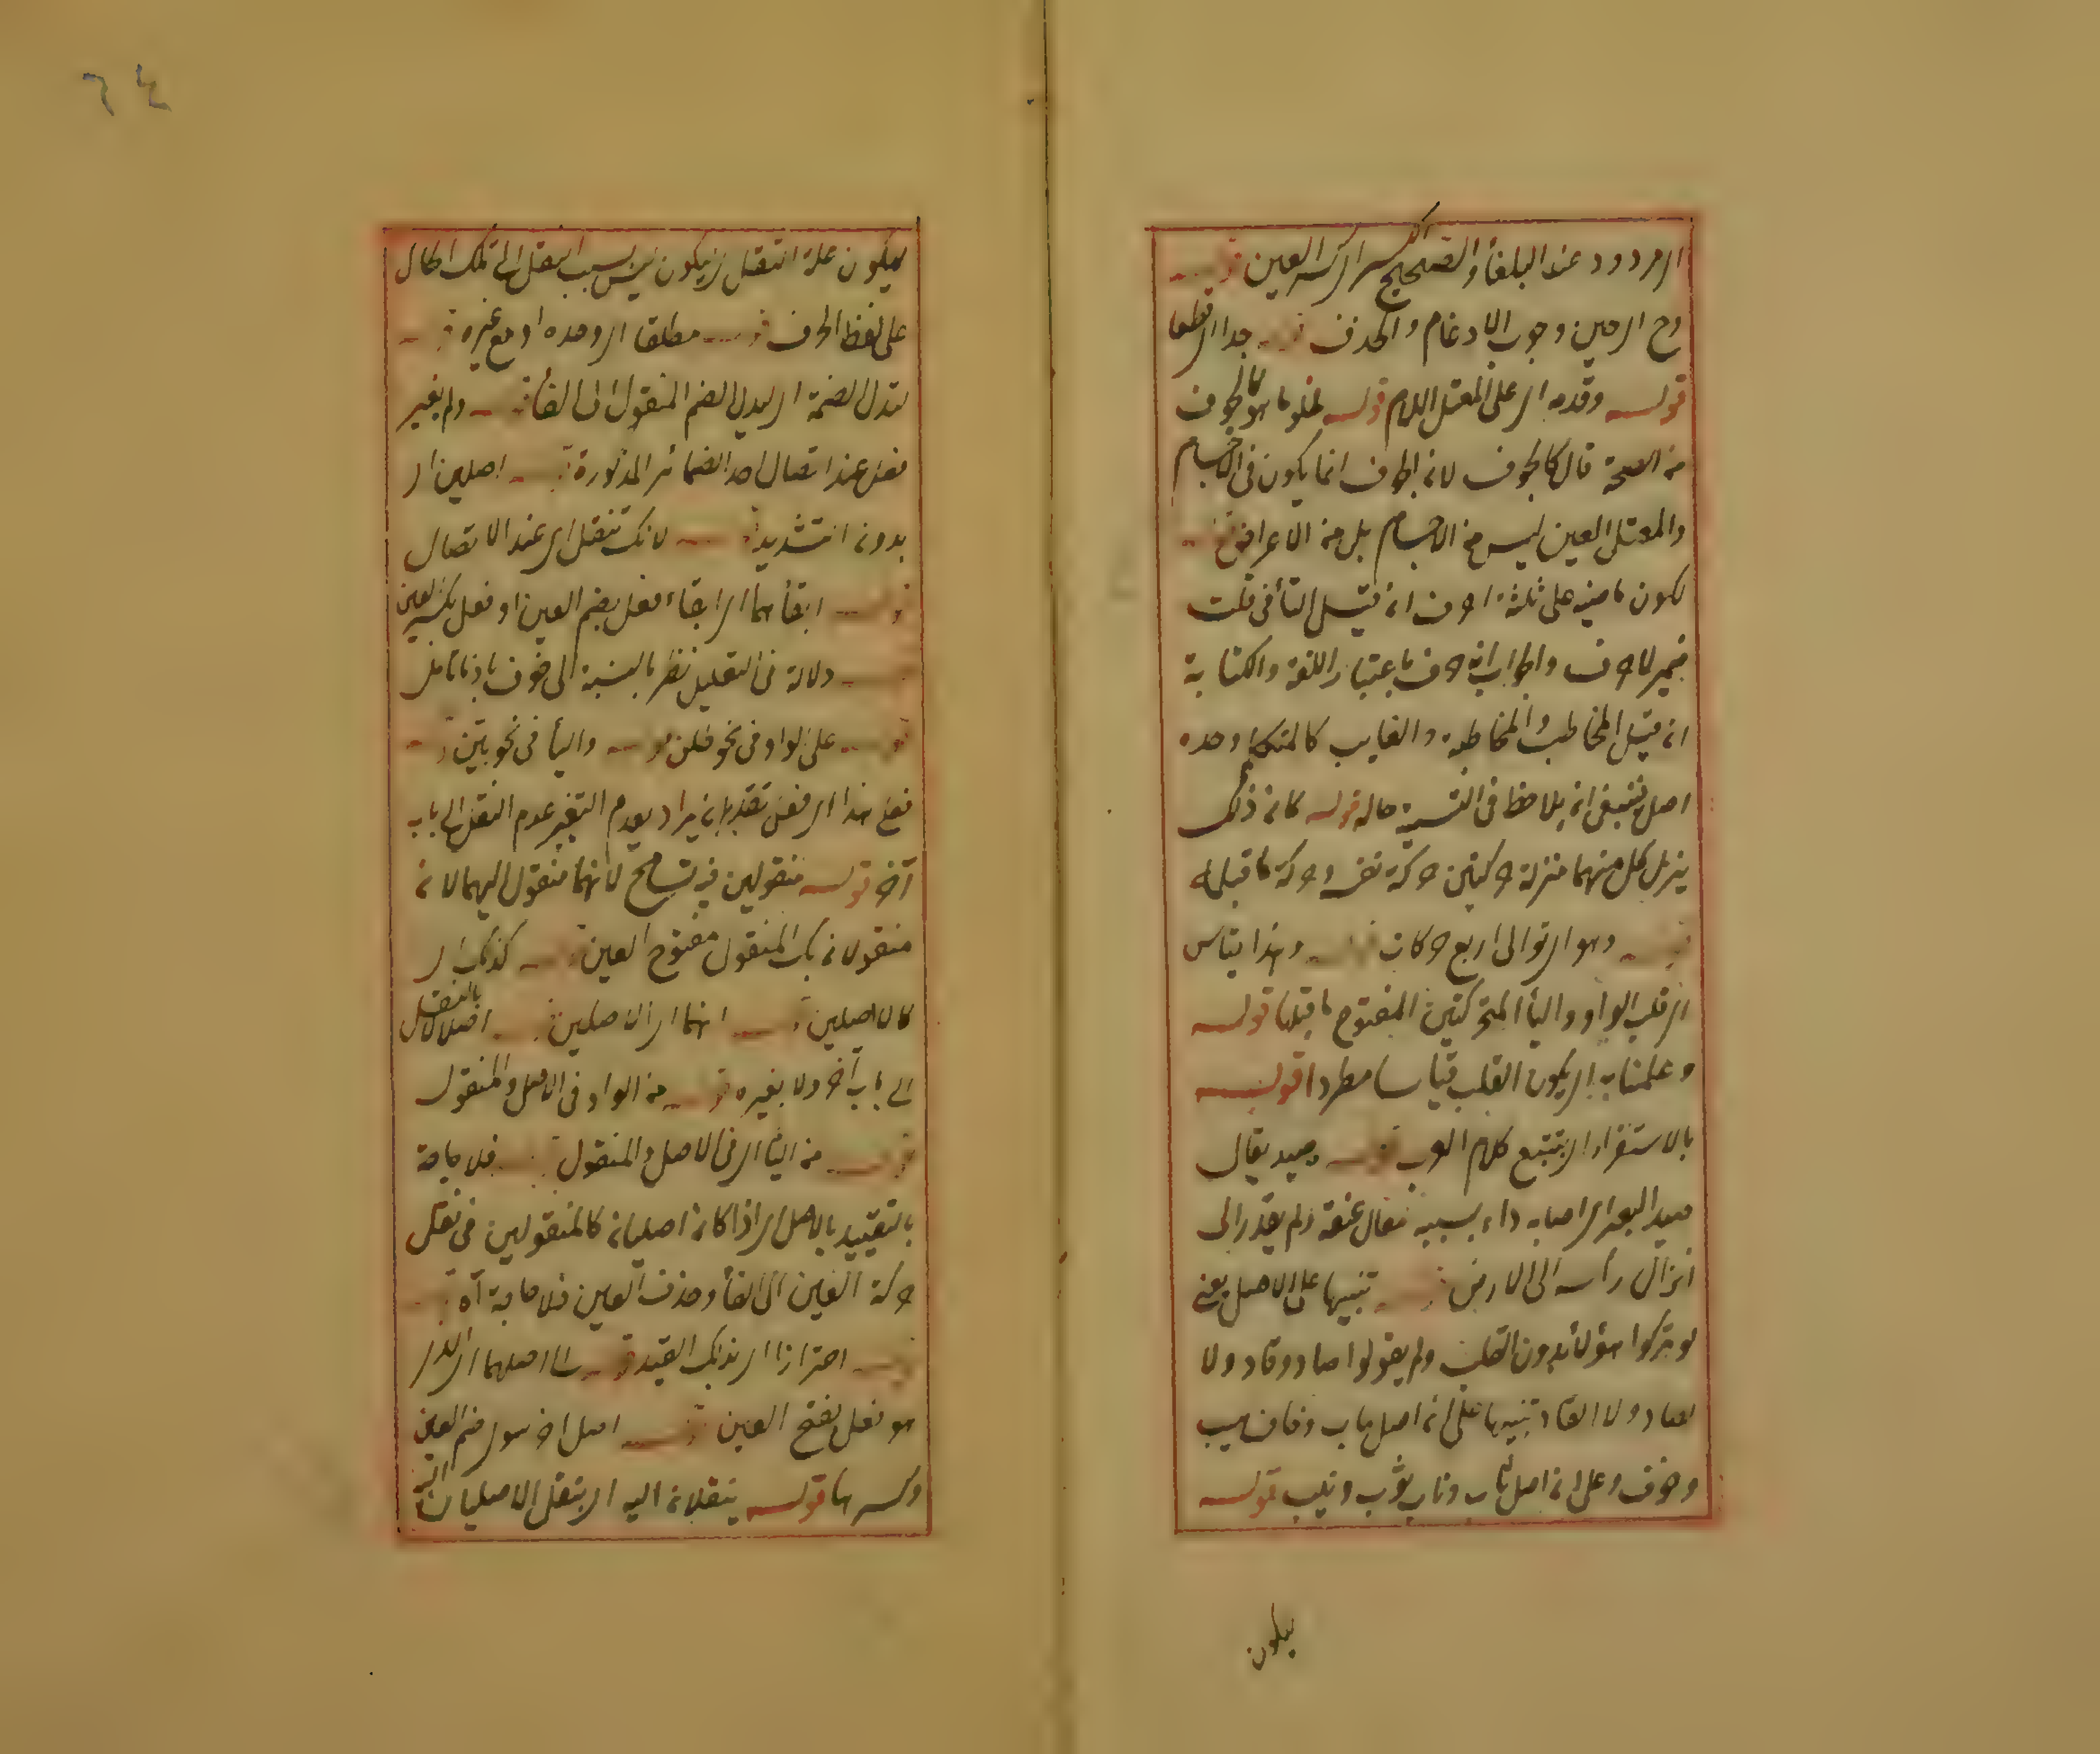 المردود عند البلغاء والصحيح الكسر اى كسر العين قوله
وح اى حين وجوب الادغام والحذف قوله جدا اى قطعا
قوله وقدمه اى على المعتل اللام قوله لخلو ما هو كالجوف
من الصحة قال كالجوف لان الجوف انما يكون فى الاجسام
والمعتل العين ليس من الاجسام بل من الاعراض قوله
لكون ماضيه على ثلثة احرف ان قيل التأ فى قلت
ضمير لا حرف والجواب انه حرف باعتبار اللغة والكتابة
ان قيل المخاطب والمخاطبة والغايب كالمتكلم وحده
اصل فينبغى ان يلاحظ فى التسمية حاله قوله كان ذلك
ينزل كل منهما منزلة حركتين حركة نفسه وحركة ما قبله
قوله وهو اى توالى اربع حركات قوله وهذا قياس
اى قلب الواو واليأ المتحركتين المفتوح ما قبلها قوله
وعلمنا به اى يكون القلب قياسا مطردا قوله
بالاستقراء اى بتتبع كلام العرب قوله صيد يقال
صيد البعير اى اصابه داء بسببه فمال عنقه ولم يقدر الى
انزال رأسه الى الارض قوله تنبيها على الاصل يعنى
لو تركوا هؤلاء بدون القلب ولم يقولوا صاد وقاد ولا
تنبيها على ان اصل هاب وخاف هيب
وخوف وعلى ان اصل باب وناب بوب ونيب قوله
ليكون
٦٤
ليكون علة انتقل اى يكون ليس بسبب النقل الى تلك الحال
على لفظ الحرف قوله مطلقا اى وحده او مع غيره قوله
لتدل الضمة اى ليدل الضم المنقول الى الفأ قوله ولم يغير
فعل عند اتصال احد الضمائر المذكورة قوله اصلين اى
بدون التشديد قوله لانك تنقل اى عند الاتصال
قوله ابقأهما اى ابقاء فعل بضم العين او فعل بكسر العين
قوله دلالة فى التعليل نظر بالنسبة الى خوف باذنا تأمل
قوله على الواو فى نحو قلن قوله واليأ فى نحو بعن قوله
فعل هذا اى فعل تقدير ان يراد بعدم التغير عدم النقل الى باب
آخر قوله منقولين فيه تسامح لانهما منقول اليهما لان
منقولان بل المنقول مفتوح العين قوله كذلك اى
كالاصلين قوله انهما اى الاصلين قوله اصلا لا بالنقل
الى باب آخر ولا بغيره قوله من الواو فى الاصل والمنقول
قوله من اليأ اى فى الاصل والمنقول قوله فلا حاجة
بالتقييد بالاصل اى اذا كان اصليان كالمنقولين فى نقل
حركة العين الى الفأ وحذف العين فلا حاجة آه قوله
قوله احترازا اى بذلك القيد قوله الى اصلهما اى الذى
هو فعل بفتح العين قوله اصل آخر سوى ضم العين
وكسرها قوله ينقلان اليه اى ينقل الاصليان اليه